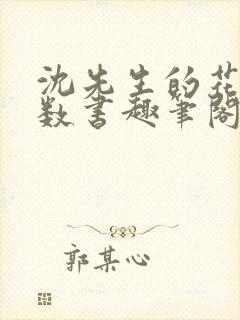 沈先生的花
数书趣笔阁
郭某心